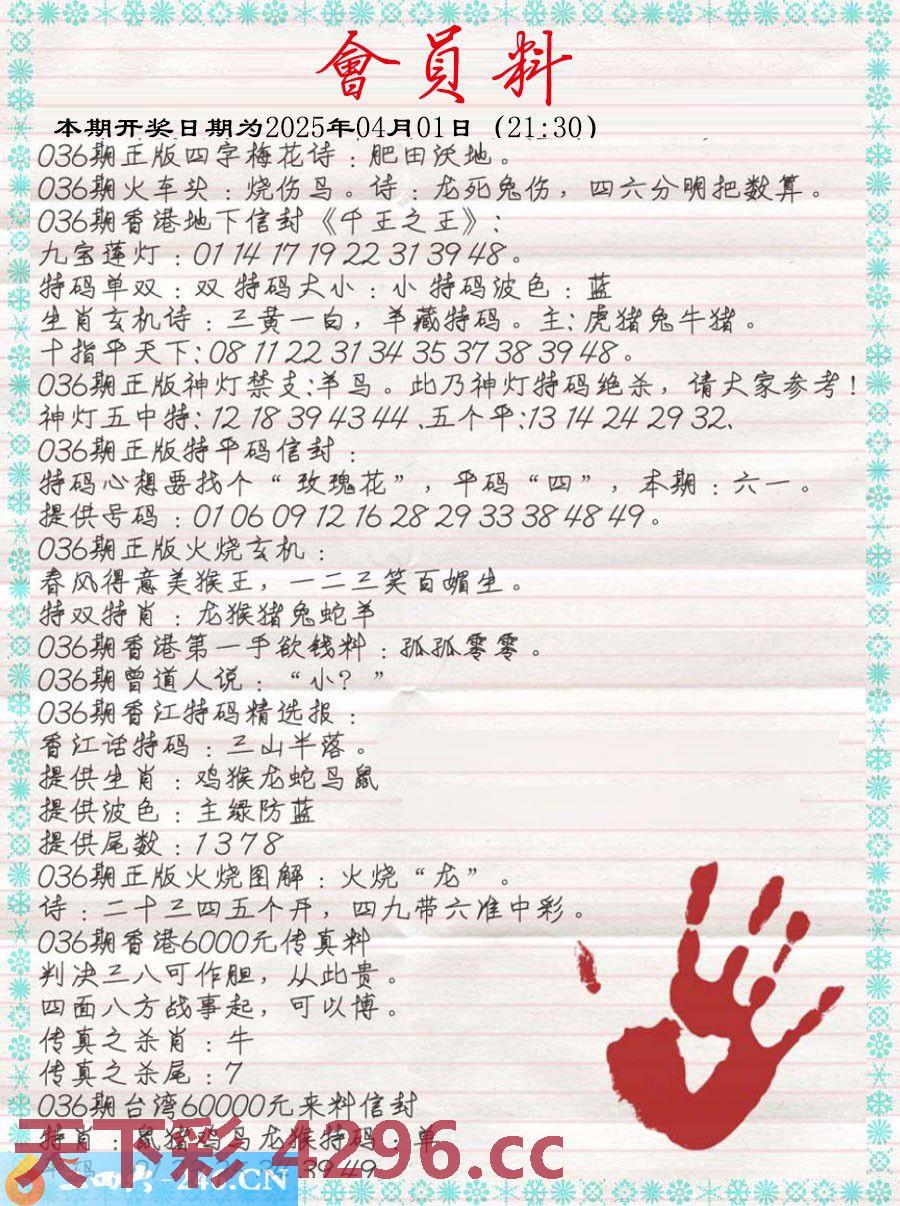 會員料
本期开奖日期为2025年04月01日（21:30）
036期正版四字梅花诗：肥田沃地。
036期火车头：烧伤鸟。诗：龙死兔伤，四六分明把数算。
036期香港地下信封《千王之王》：
九宝莲灯：01 14 17 19 22 31 39 48。
特码单双：双 特码大小：小 特码波色：蓝
生肖玄机诗：三黄一白，羊藏特码。主：虎猪兔牛猪。
十指平天下：08 11 22 31 34 35 37 38 39 48。
036期正版神灯禁支：羊鸟。此乃神灯特码绝杀，请大家参考！
神灯五中特：12 18 39 43 44、五个平：13 14 24 29 32、
036期正版特平码信封：
特码心想要找个“玫瑰花”，平码“四”，本期：六一。
提供号码：01 06 09 12 16 28 29 33 38 48 49。
036期正版火烧玄机：
春风得意美猴王，一二三笑百媚生。
特双特肖：龙猴猪兔蛇羊
036期香港第一手欲钱料：孤孤零零。
036期曾道人说：“小？”
036期香江特码精选报：
香江话特码：三山半落。
提供生肖：鸡猴龙蛇鸟鼠
提供波色：主绿防蓝
提供尾数：1 3 7 8
036期正版火烧图解：火烧“龙”。
诗：二十三四五个开，四九带六准中彩。
036期香港6000元传真料
判决三八可作胆，从此贵。
四面八方战事起，可以博。
传真之杀肖：牛
传真之杀尾：7
036期台湾60000元来料信封
特肖：鼠猪鸡马龙猴特码：单
天下彩 4296.cc
39 49
-246.CN